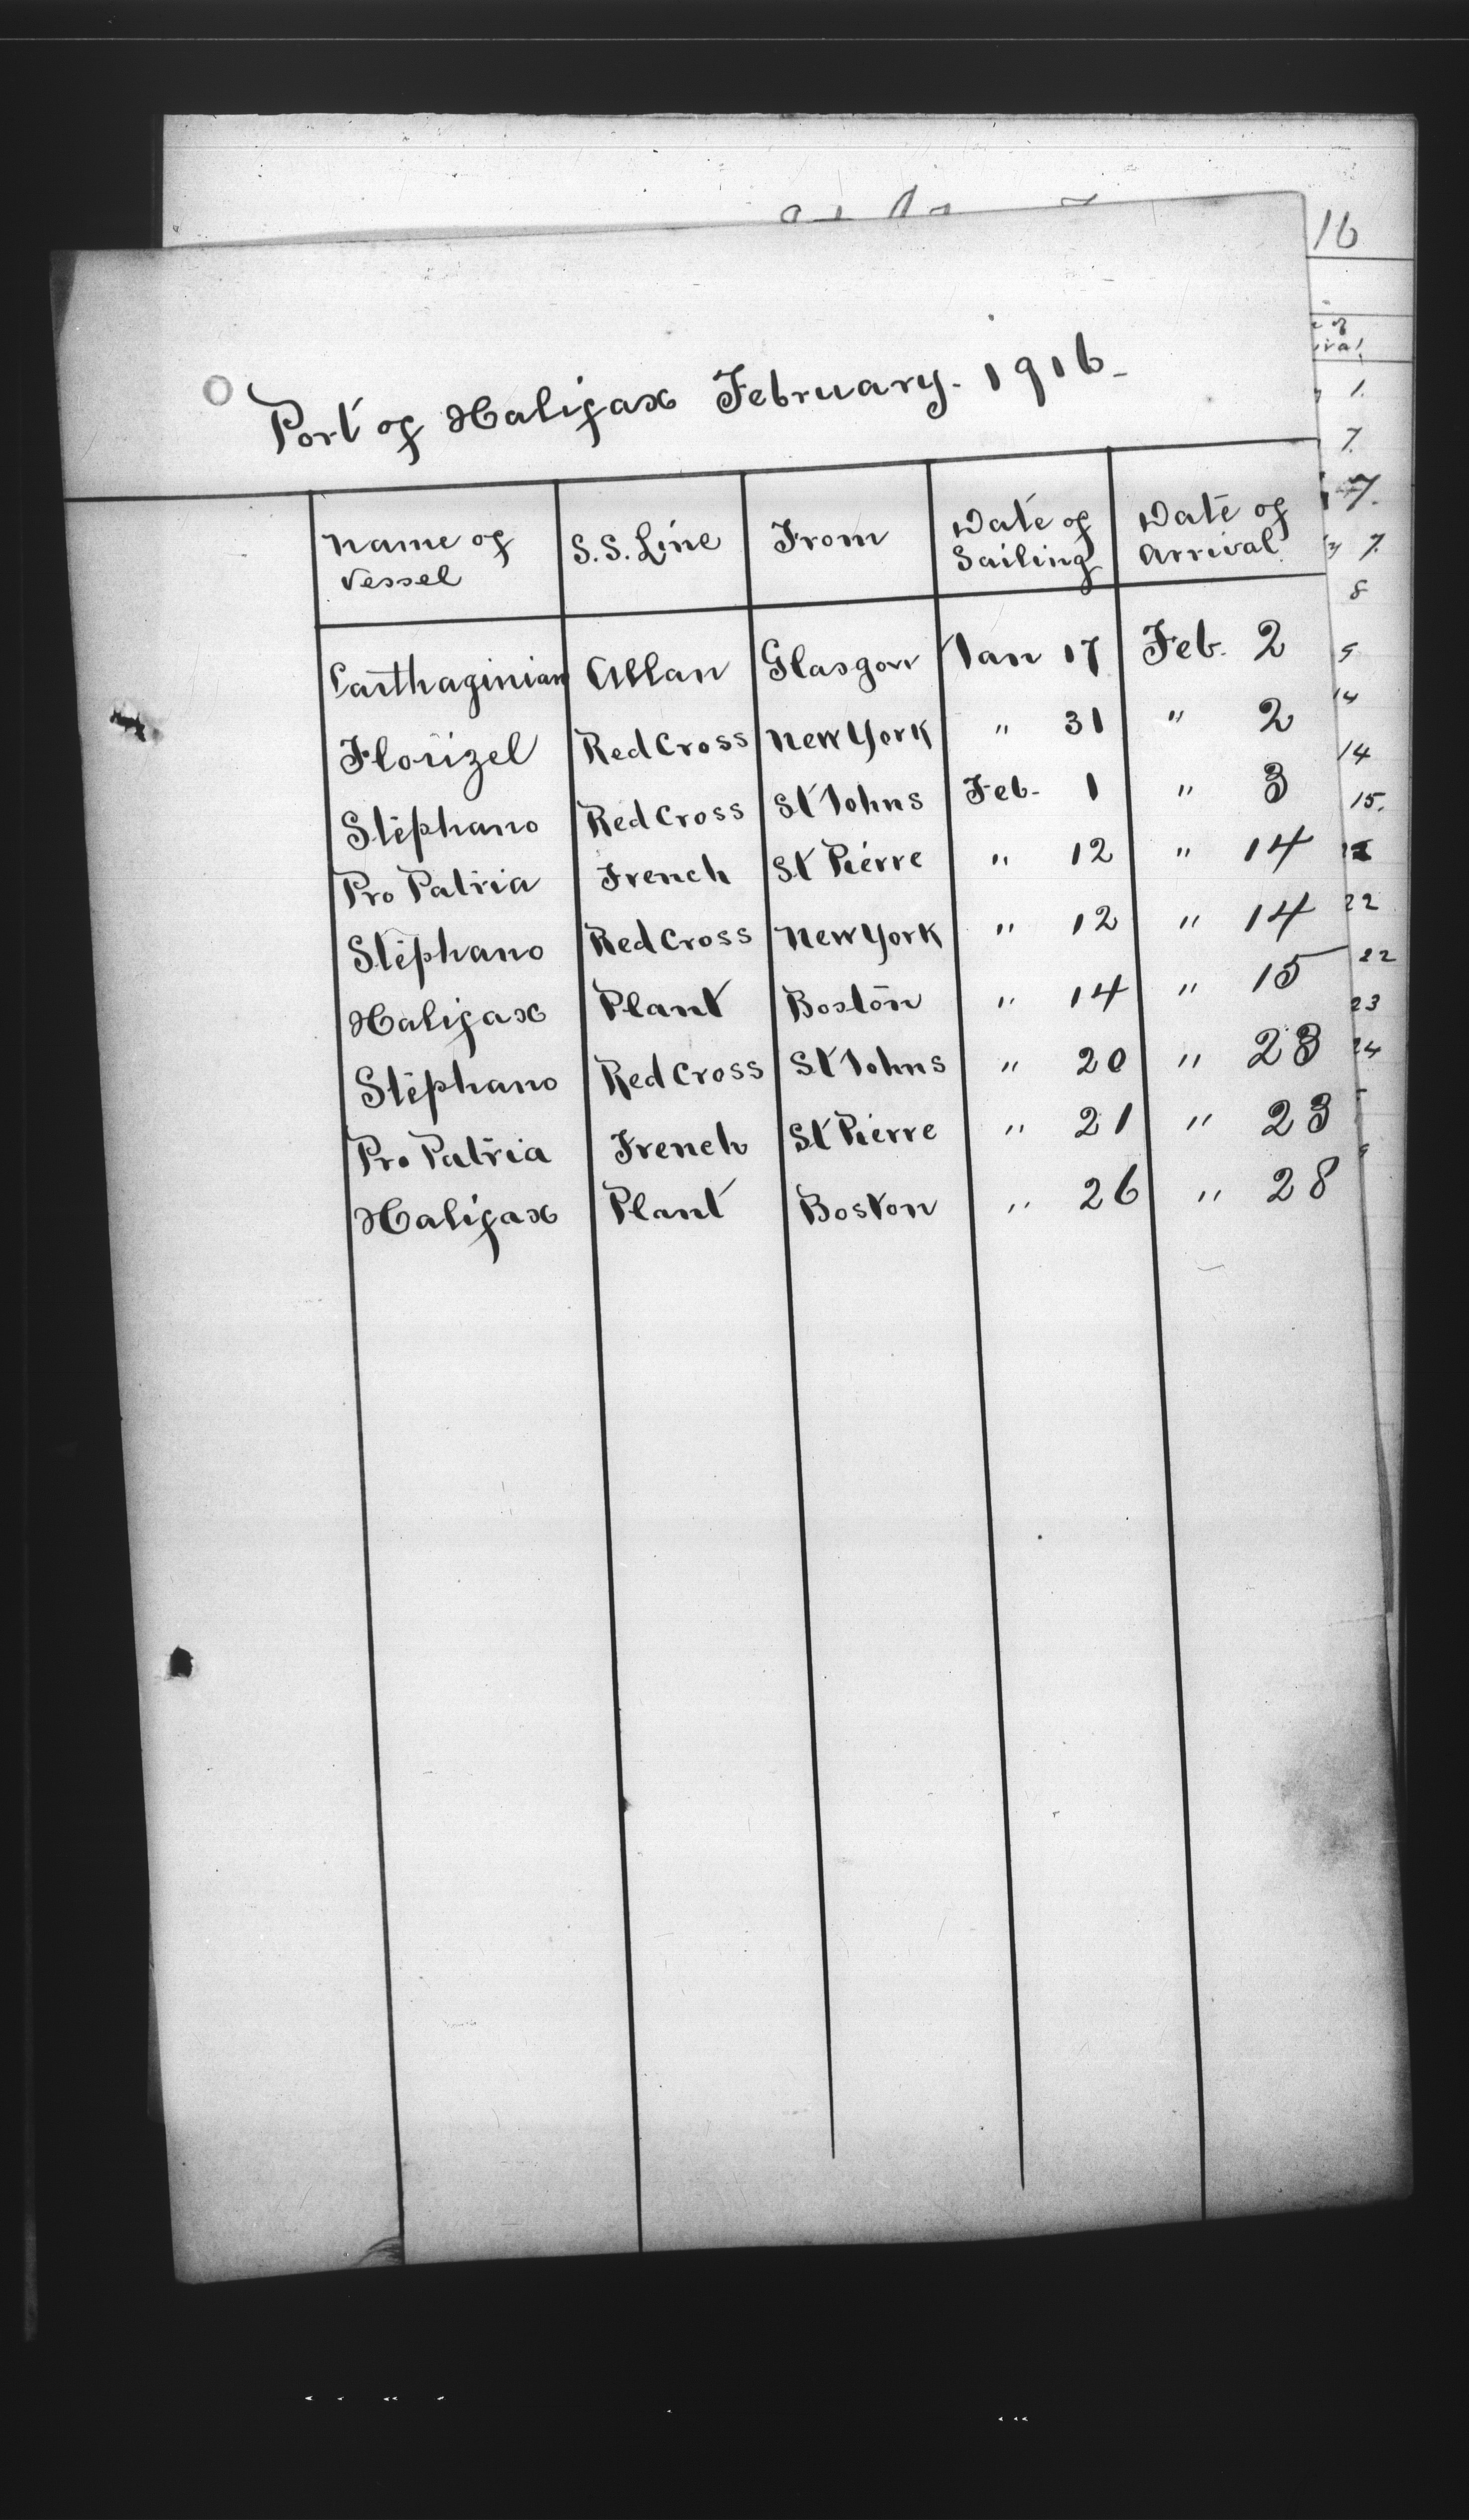 Port of Halifax February. 1916-
Name of Vessel S.S. Line From Date of Sailing Date of Arrival
Carthaginian Allan Glasgow Jan 17 Feb. 2
Florizel Red Cross New York " 31 " 2
Stephano Red Cross St Johns Feb- 1 " 3
Pro Patria French St Pierre " 12 " 14
Stephano Red Cross New York " 12 " 14
Halifax Plant Boston " 14 " 15
Stephano Red Cross St Johns " 20 " 23
Pro Patria French St Pierre " 21 " 23
Halifax Plant Boston " 26 " 28
16
1.
7.
7.
7.
8
14
14
15.
22
22
23
24